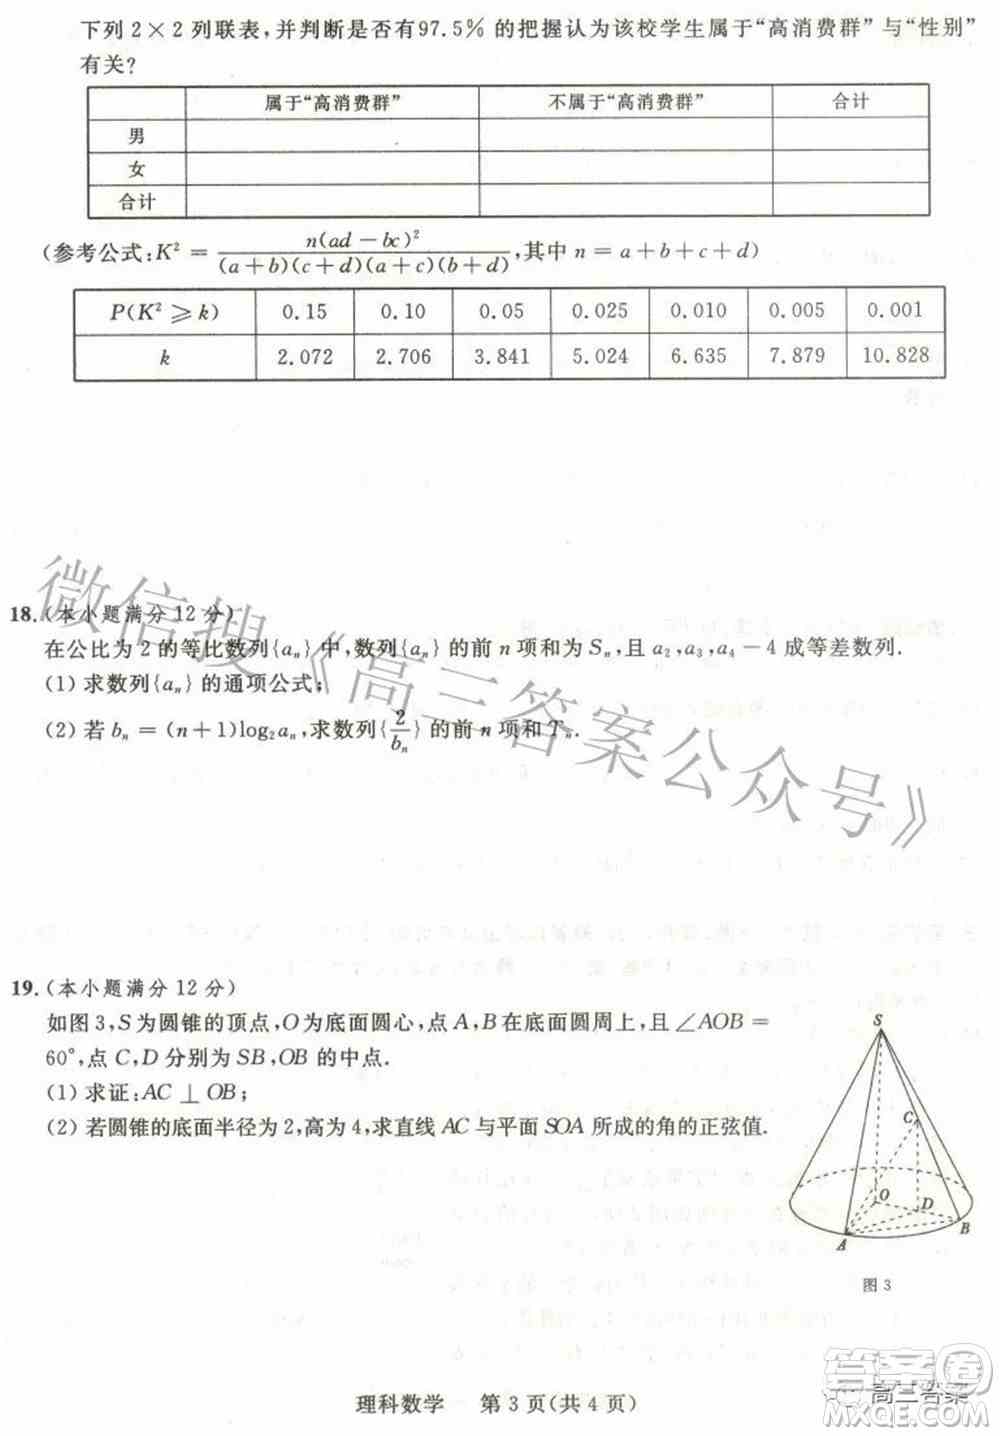 下列 2×2 列联表,并判断是否有97.5% 的把握认为该校学生属于“高消费群”与“性别”
有关?
属于“高消费群” 不属于“高消费群” 合计
男
女
合计
(参考公式:K² = n(ad−bc)² / (a+b)(c+d)(a+c)(b+d),其中 n=a+b+c+d)
P(K²⩾k) 0.15 0.10 0.05 0.025 0.010 0.005 0.001
k 2.072 2.706 3.841 5.024 6.635 7.879 10.828
18.(本小题满分 12 分)
在公比为 2 的等比数列{aₙ}中,数列{aₙ}的前 n 项和为 Sₙ,且 a₂,a₃,a₄−4 成等差数列.
(1) 求数列{aₙ}的通项公式;
(2) 若 bₙ=(n+1)log₂aₙ,求数列{2/bₙ}的前 n 项和 Tₙ.
微信搜《高三答案公众号》
19.(本小题满分 12 分)
如图 3,S 为圆锥的顶点,O 为底面圆心,点 A,B 在底面圆周上,且∠AOB=
60°,点 C,D 分别为 SB,OB 的中点.
(1) 求证:AC⊥OB;
(2) 若圆锥的底面半径为 2,高为 4,求直线 AC 与平面 SOA 所成的角的正弦值.
S
C
O
D
B
A
图 3
答案圈
高三答案
理科数学 第 3 页(共 4 页)